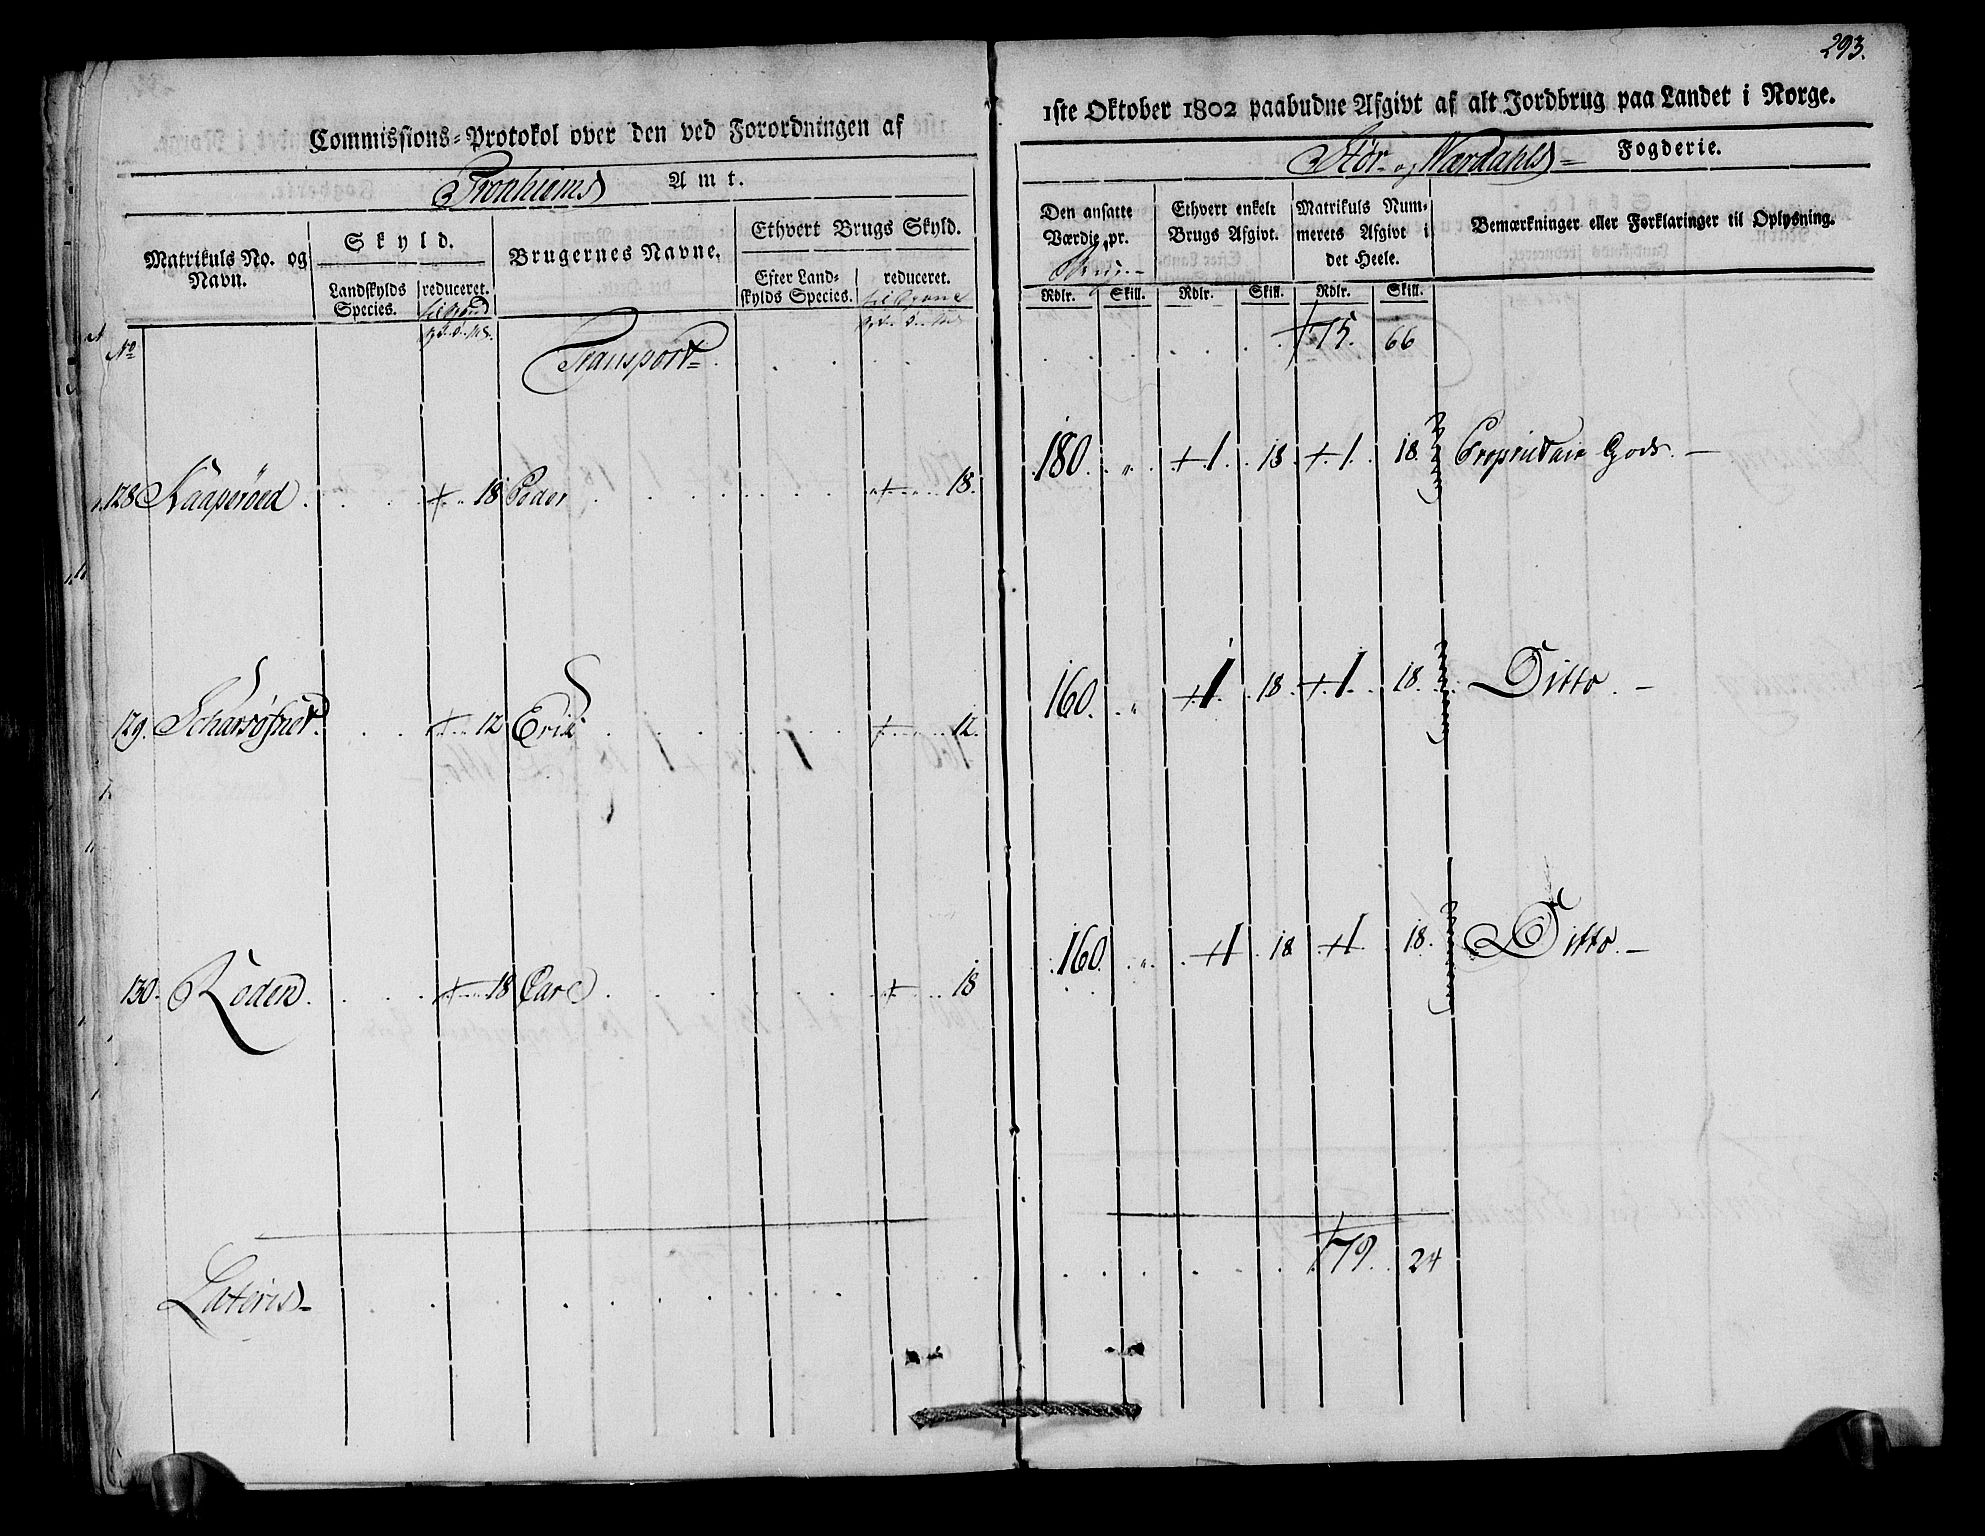 293.
Commissions=Protokol over den ved Forordningen af
1ste Oktober 1802 paabudne Afgivt af alt Jordbrug paa Landet i Norge.
Tronhiems Amt.
Stör- og Værdahls= Fogderie.
Matrikuls No. og Navn.
Skyld.
Landskylds Species.
reduceret.
Brugernes Navne.
Ethvert Brugs Skyld.
Efter Landskylds Species.
reduceret.
Den ansatte Værdie pr.
Ethvert enkelt Brugs Afgivt.
Matrikuls Nummerets Afgivt i det Heele.
Bemærkninger eller Forklaringer til Oplysning.
Rdlr. Skill. Rdlr. Skill. Rdlr. Skill.
No
Transport . . . . . 175. 66
128 . . . 18 Peder . . . . 18. 180. „ 1. 18 1. 18. Proprietair Gods. —
129. . . . 12 Eric . . . . 12. 160. „ 1. 18 1. 18. Ditto. —
130. Roden . . . 18 . . . . 18 160. „ 1 18 1 18. Ditto. —
Lateris . . . . . 179. 24